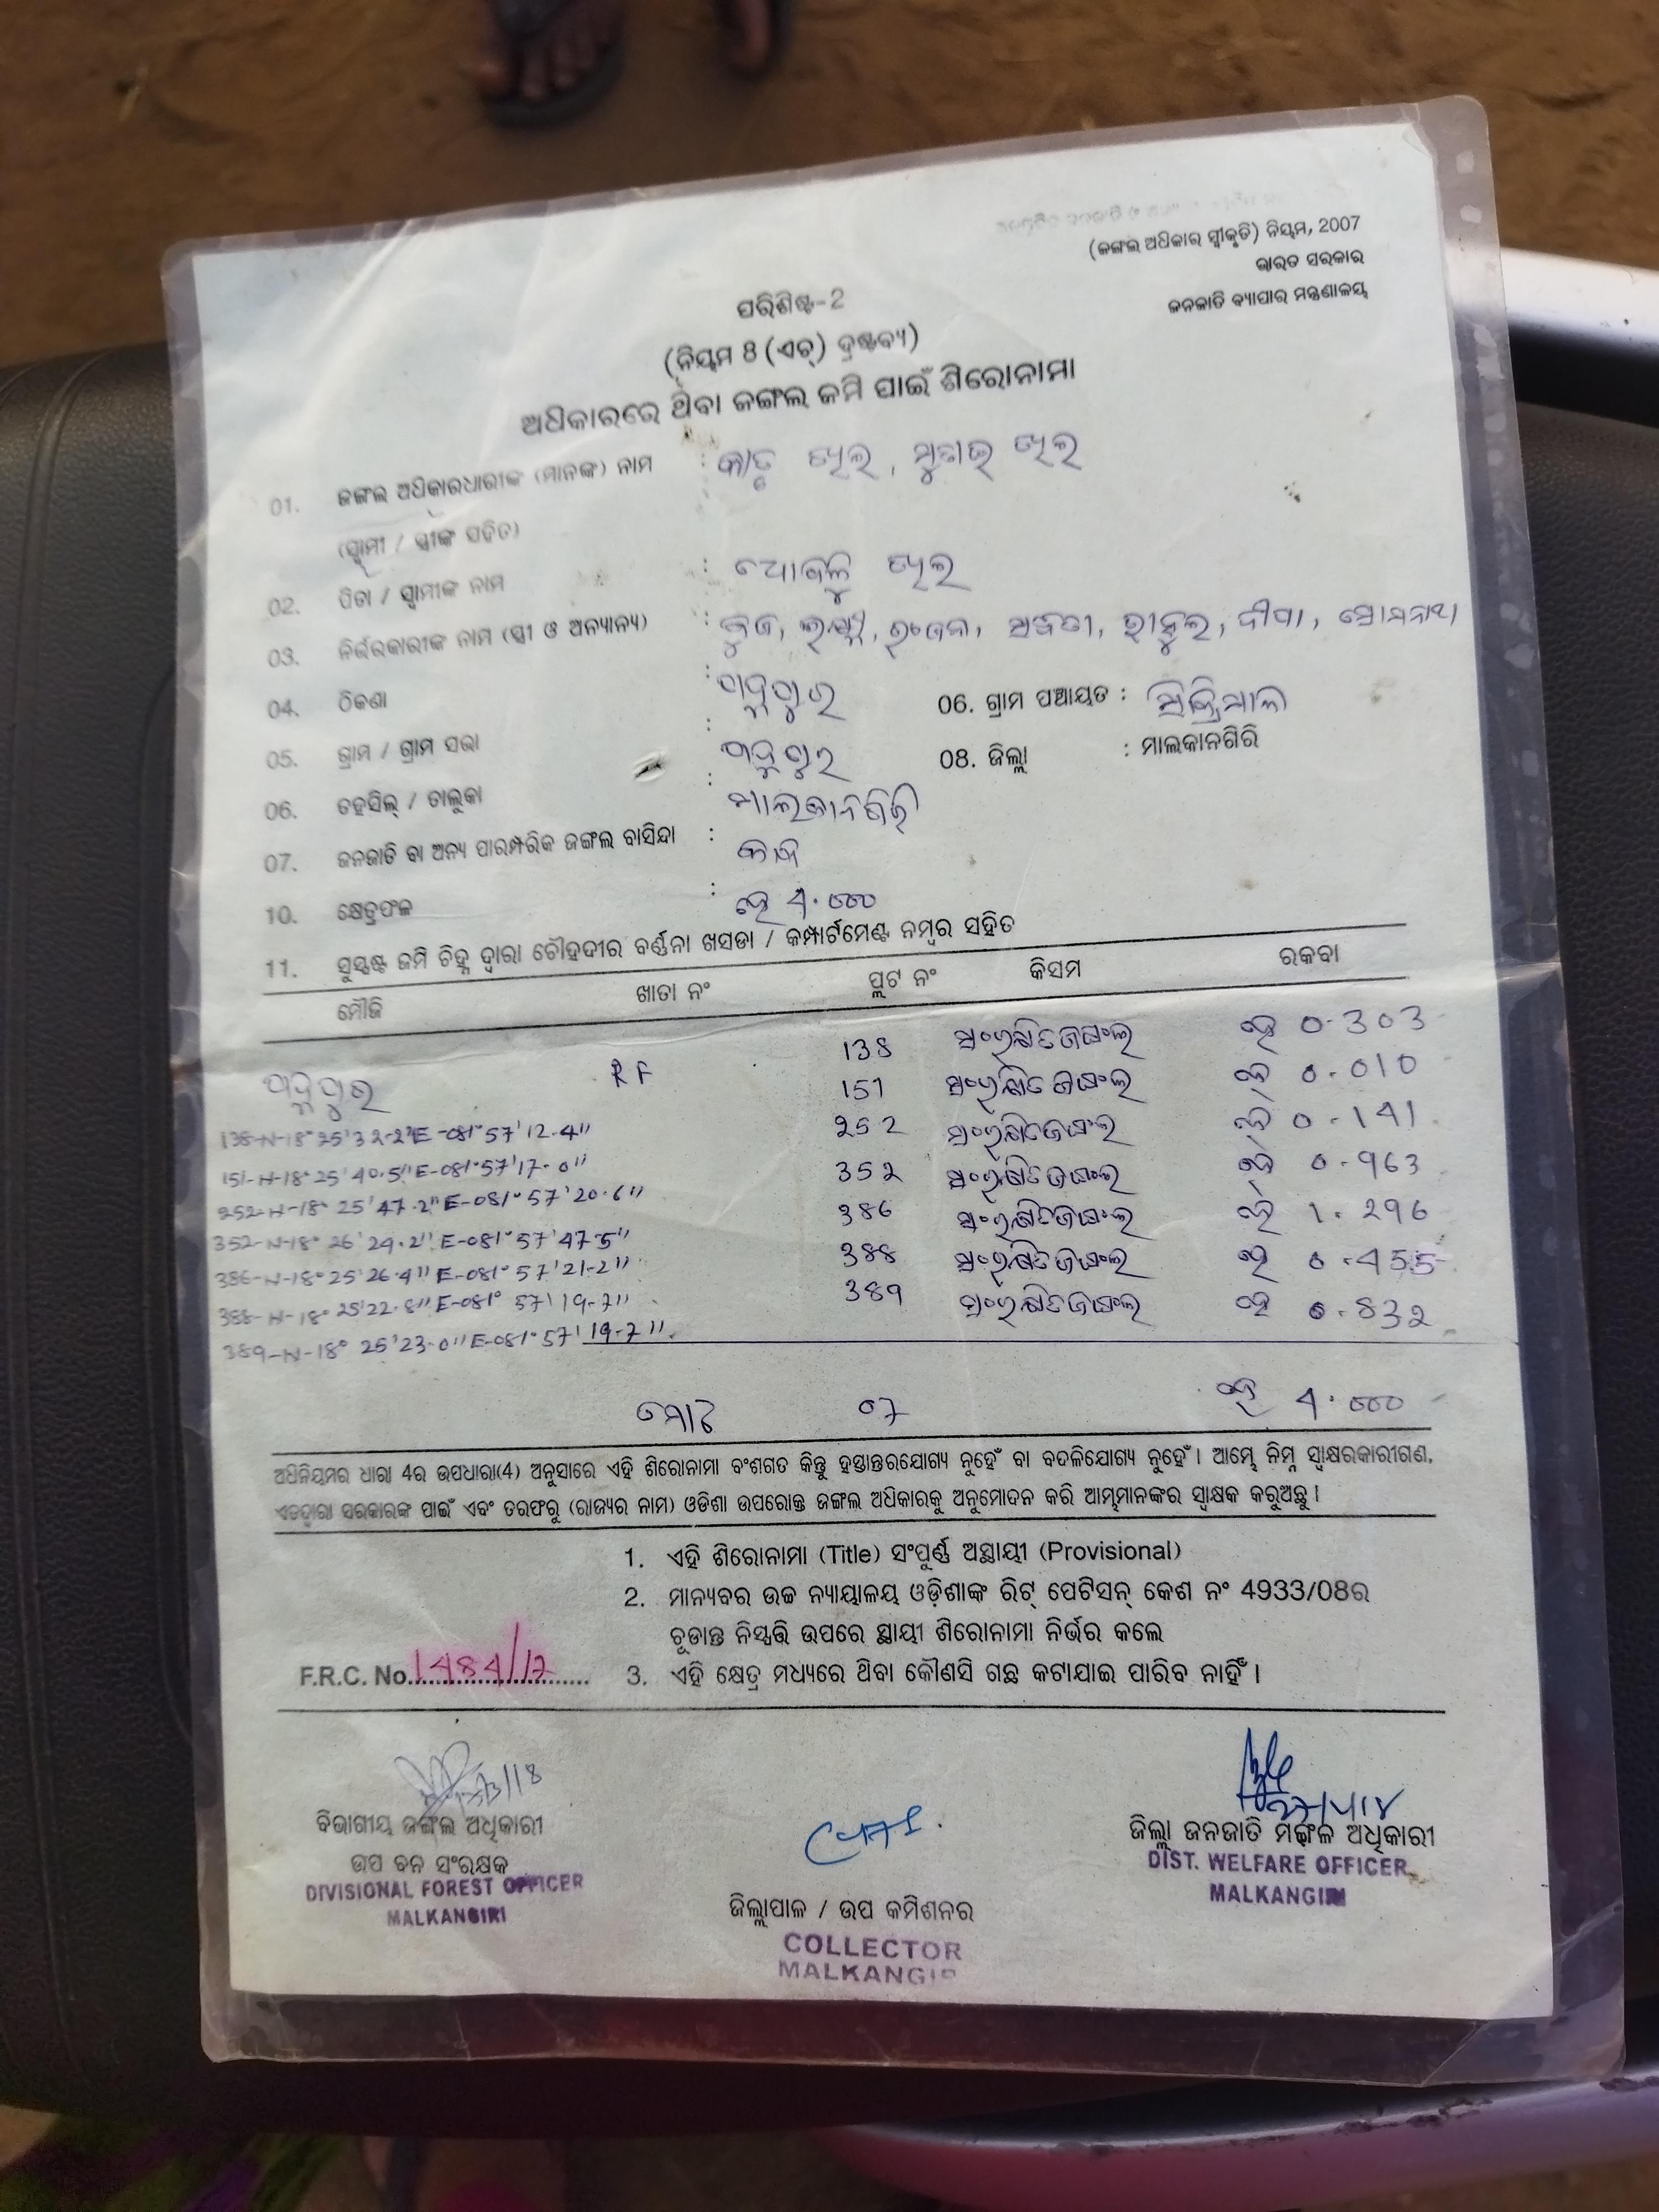 (ଜଙ୍ଗଲ ଅଧିକାର ସ୍ୱୀକୃତି) ନିୟମ, 2007
ଭାରତ ସରକାର
ଜନଜାତି ବ୍ୟାପାର ମନ୍ତ୍ରଣାଳୟ
ପରିଶିଷ୍ଟ-2
(ନିୟମ 8 (ଏଚ୍) ଦ୍ରଷ୍ଟବ୍ୟ)
ଅଧିକାରରେ ଥିବା ଜଙ୍ଗଲ ଜମି ପାଇଁ ଶିରୋନାମା
01. ଜଙ୍ଗଲ ଅଧିକାରଧାରୀଙ୍କ (ମାନଙ୍କ) ନାମ :
(ସ୍ୱାମୀ / ସ୍ତ୍ରୀଙ୍କ ସହିତ)
02. ପିତା / ସ୍ୱାମୀଙ୍କ ନାମ :
03. ନିର୍ଭରକାରୀଙ୍କ ନାମ (ସ୍ତ୍ରୀ ଓ ଅନ୍ୟାନ୍ୟ) :
04. ଠିକଣା : ପଦ୍ମପୁର 06. ଗ୍ରାମ ପଞ୍ଚାୟତ :
05. ଗ୍ରାମ / ଗ୍ରାମ ସଭା : ପଦ୍ମପୁର 08. ଜିଲ୍ଲା : ମାଲକାନଗିରି
06. ତହସିଲ୍ / ତାଲୁକା : ମାଲକାନଗିରି
07. ଜନଜାତି ବା ଅନ୍ୟ ପାରମ୍ପରିକ ଜଙ୍ଗଲ ବାସିନ୍ଦା :
10. କ୍ଷେତ୍ରଫଳ : ହେ 4.000
11. ସୁସ୍ପଷ୍ଟ ଜମି ଚିହ୍ନ ଦ୍ୱାରା ଚୌହଦୀର ବର୍ଣ୍ଣନା ଖସଡା / କମ୍ପାର୍ଟମେଣ୍ଟ ନମ୍ବର ସହିତ
ମୌଜି ଖାତା ନଂ ପ୍ଲଟ ନଂ କିସମ ରକବା
ପଦ୍ମପୁର RF 138 ସଂରକ୍ଷିତ ଜଙ୍ଗଲ ହେ 0.303
151 ସଂରକ୍ଷିତ ଜଙ୍ଗଲ ହେ 0.010
252 ସଂରକ୍ଷିତ ଜଙ୍ଗଲ ହେ 0.141
352 ସଂରକ୍ଷିତ ଜଙ୍ଗଲ ହେ 0.963
386 ସଂରକ୍ଷିତ ଜଙ୍ଗଲ ହେ 1.296
388 ସଂରକ୍ଷିତ ଜଙ୍ଗଲ ହେ 0.455
389 ସଂରକ୍ଷିତ ଜଙ୍ଗଲ ହେ 0.832
138-N-18° 25'32.2"E-081°57'12.4"
151-N-18° 25'40.5"E-081°57'17.0"
252-N-18° 25'47.2"E-081°57'20.6"
352-N-18° 26'24.2"E-081°57'47.5"
386-N-18° 25'26.4"E-081°57'21.2"
388-N-18° 25'22.8"E-081°57'19.7"
389-N-18° 25'23.0"E-081°57'19.7"
ମୋଟ 07 ହେ 4.000
ଅଧିନିୟମର ଧାରା 4ର ଉପଧାରା(4) ଅନୁସାରେ ଏହି ଶିରୋନାମା ବଂଶଗତ କିନ୍ତୁ ହସ୍ତାନ୍ତରଯୋଗ୍ୟ ନୁହେଁ ବା ବଦଳିଯୋଗ୍ୟ ନୁହେଁ । ଆମ୍ଭେ ନିମ୍ନ ସ୍ୱାକ୍ଷରକାରୀଗଣ,
ଏତଦ୍ୱାରା ସରକାରଙ୍କ ପାଇଁ ଏବଂ ତରଫରୁ (ରାଜ୍ୟର ନାମ) ଓଡିଶା ଉପରୋକ୍ତ ଜଙ୍ଗଲ ଅଧିକାରକୁ ଅନୁମୋଦନ କରି ଆମ୍ଭମାନଙ୍କର ସ୍ୱାକ୍ଷକ କରୁଅଛୁ ।
1. ଏହି ଶିରୋନାମା (Title) ସଂପୂର୍ଣ୍ଣ ଅସ୍ଥାୟୀ (Provisional)
2. ମାନ୍ୟବର ଉଚ୍ଚ ନ୍ୟାୟାଳୟ ଓଡ଼ିଶାଙ୍କ ରିଟ୍ ପେଟିସନ୍ କେଶ ନଂ 4933/08ର
ଚୂଡାନ୍ତ ନିସ୍ପତ୍ତି ଉପରେ ସ୍ଥାୟୀ ଶିରୋନାମା ନିର୍ଭର କଲେ
F.R.C. No. 1484/17
3. ଏହି କ୍ଷେତ୍ର ମଧ୍ୟରେ ଥିବା କୌଣସି ଗଛ କଟାଯାଇ ପାରିବ ନାହିଁ ।
ବିଭାଗୀୟ ଜଙ୍ଗଲ ଅଧିକାରୀ
ଉପ ବନ ସଂରକ୍ଷକ
DIVISIONAL FOREST OFFICER
MALKANGIRI
ଜିଲ୍ଲାପାଳ / ଉପ କମିଶନର
COLLECTOR
MALKANGIR
ଜିଲ୍ଲା ଜନଜାତି ମଙ୍ଗଳ ଅଧିକାରୀ
DIST. WELFARE OFFICER
MALKANGIRI